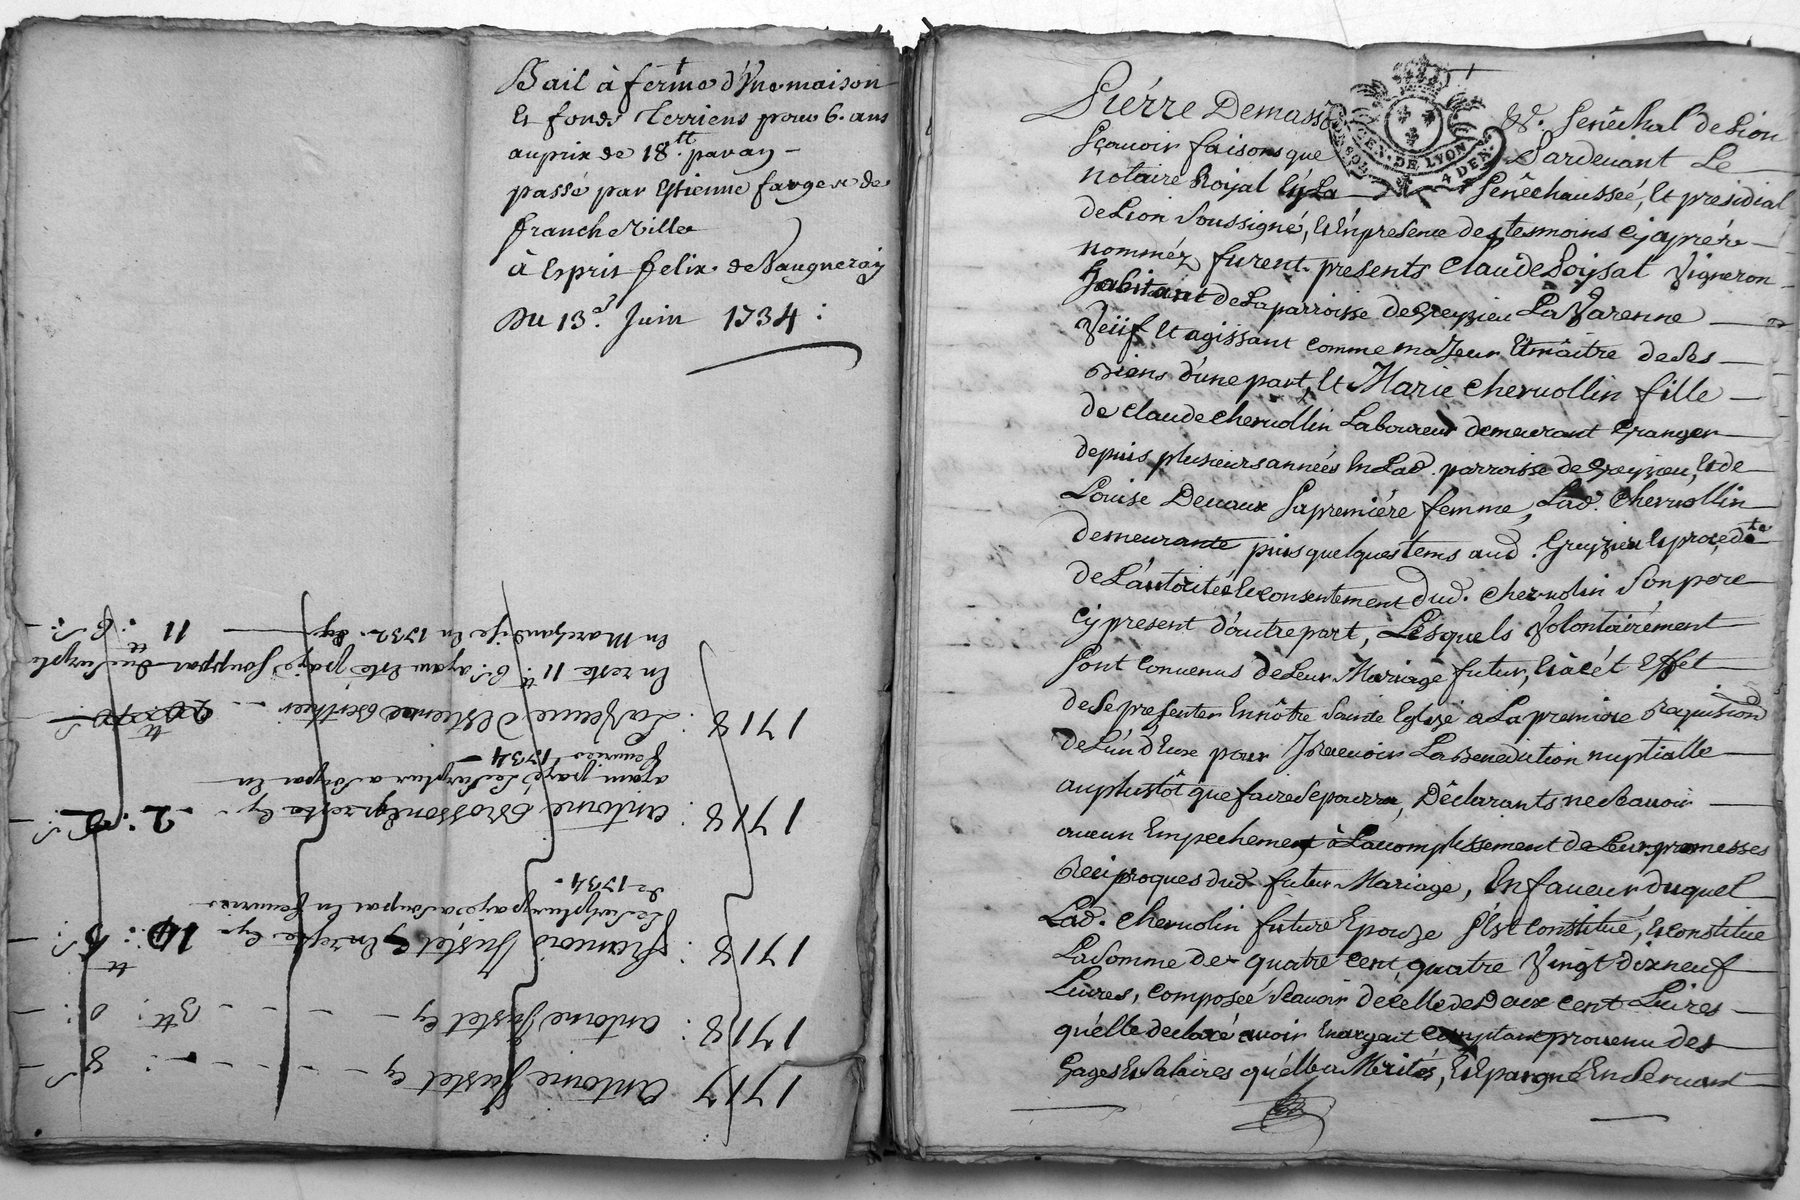 Bail à ferme d'Une maison
Et fonds terriens pour 6. ans
au prix de 18.tt par an –
passé par Estienne farges de
francheville
à Esprit felix de Vaugneray
Du 13.e Juin 1734 :
1717 antoine Justet cy - - - - 8 s
1718 : antoine Justet cy - - - - 3tt : 0 : -
1718 : francois Justet En reste cy -
Le Surplus payé a Soupat En feuvrier
de 1734.
1718 : antoine Brossont reste cy - - 2 :
ayant payé Le Surplus a Soupat En
feuvrier 1734 –
1718 : La Veuve d'Estienne Berthier -
En reste 11tt 6 s ayant Esté payé Souppat du Surplu
En Marchandise En 1732. Cy — 11tt : 6 s :
GEN. DE LYON
4 DEN.
Pierre Demasso & Senêchal de Lion
Sçavoir faisons que Pardevant Le
notaire Royal En La Senêchaussée, Et presidial
de Lion Soussigné, Et En presence des tesmoins cy aprés
nommez furent presents Claude Loysat Vigneron
habitant de La parroisse de Greyzieu La Varenne
Veüf Et agissant comme majeur Et maître de Ses
Biens d'une part, Et Marie Chervollin fille
de Claude Chervollin Laboureur demeurant Granger
depuis plusieurs années En Lad. parroisse de Greyzieu, Et de
Louise Devaux Sa premiére femme, Lad. Chervollin
demeurante puis quelques tems aud. Greyzieu Et procedte
de L'autorité Et consentement dud. Chervolin Son pere
cy present d'autre part, Lesquels Volontairément
Sont Convenus de Leur Mariage futur, Et à cét Effet
de Se presenter En nôtre Sainte Eglize a La premiere Requisition
de L'un d'Eux pour Y Recevoir La Benediction nuptialle
au plustôt que faire Se pourra, Déclarants ne Scavoir
aucun Empechement à L'accomplissement de Leurs promesses
Reciproques dud. futur Mariage, En faveur duquel
Lad. Chervolin future Epouze S'est Constitué, Et constitüe
La Somme de quatre cent quatre Vingt dix neuf
Livres, composée Scavoir de celle de Deux cent Livres
qu'elle declaré avoir En argent Comptant provenu des
Gages Et Salaires qu'elle a Merités, Et Epargné En Servant